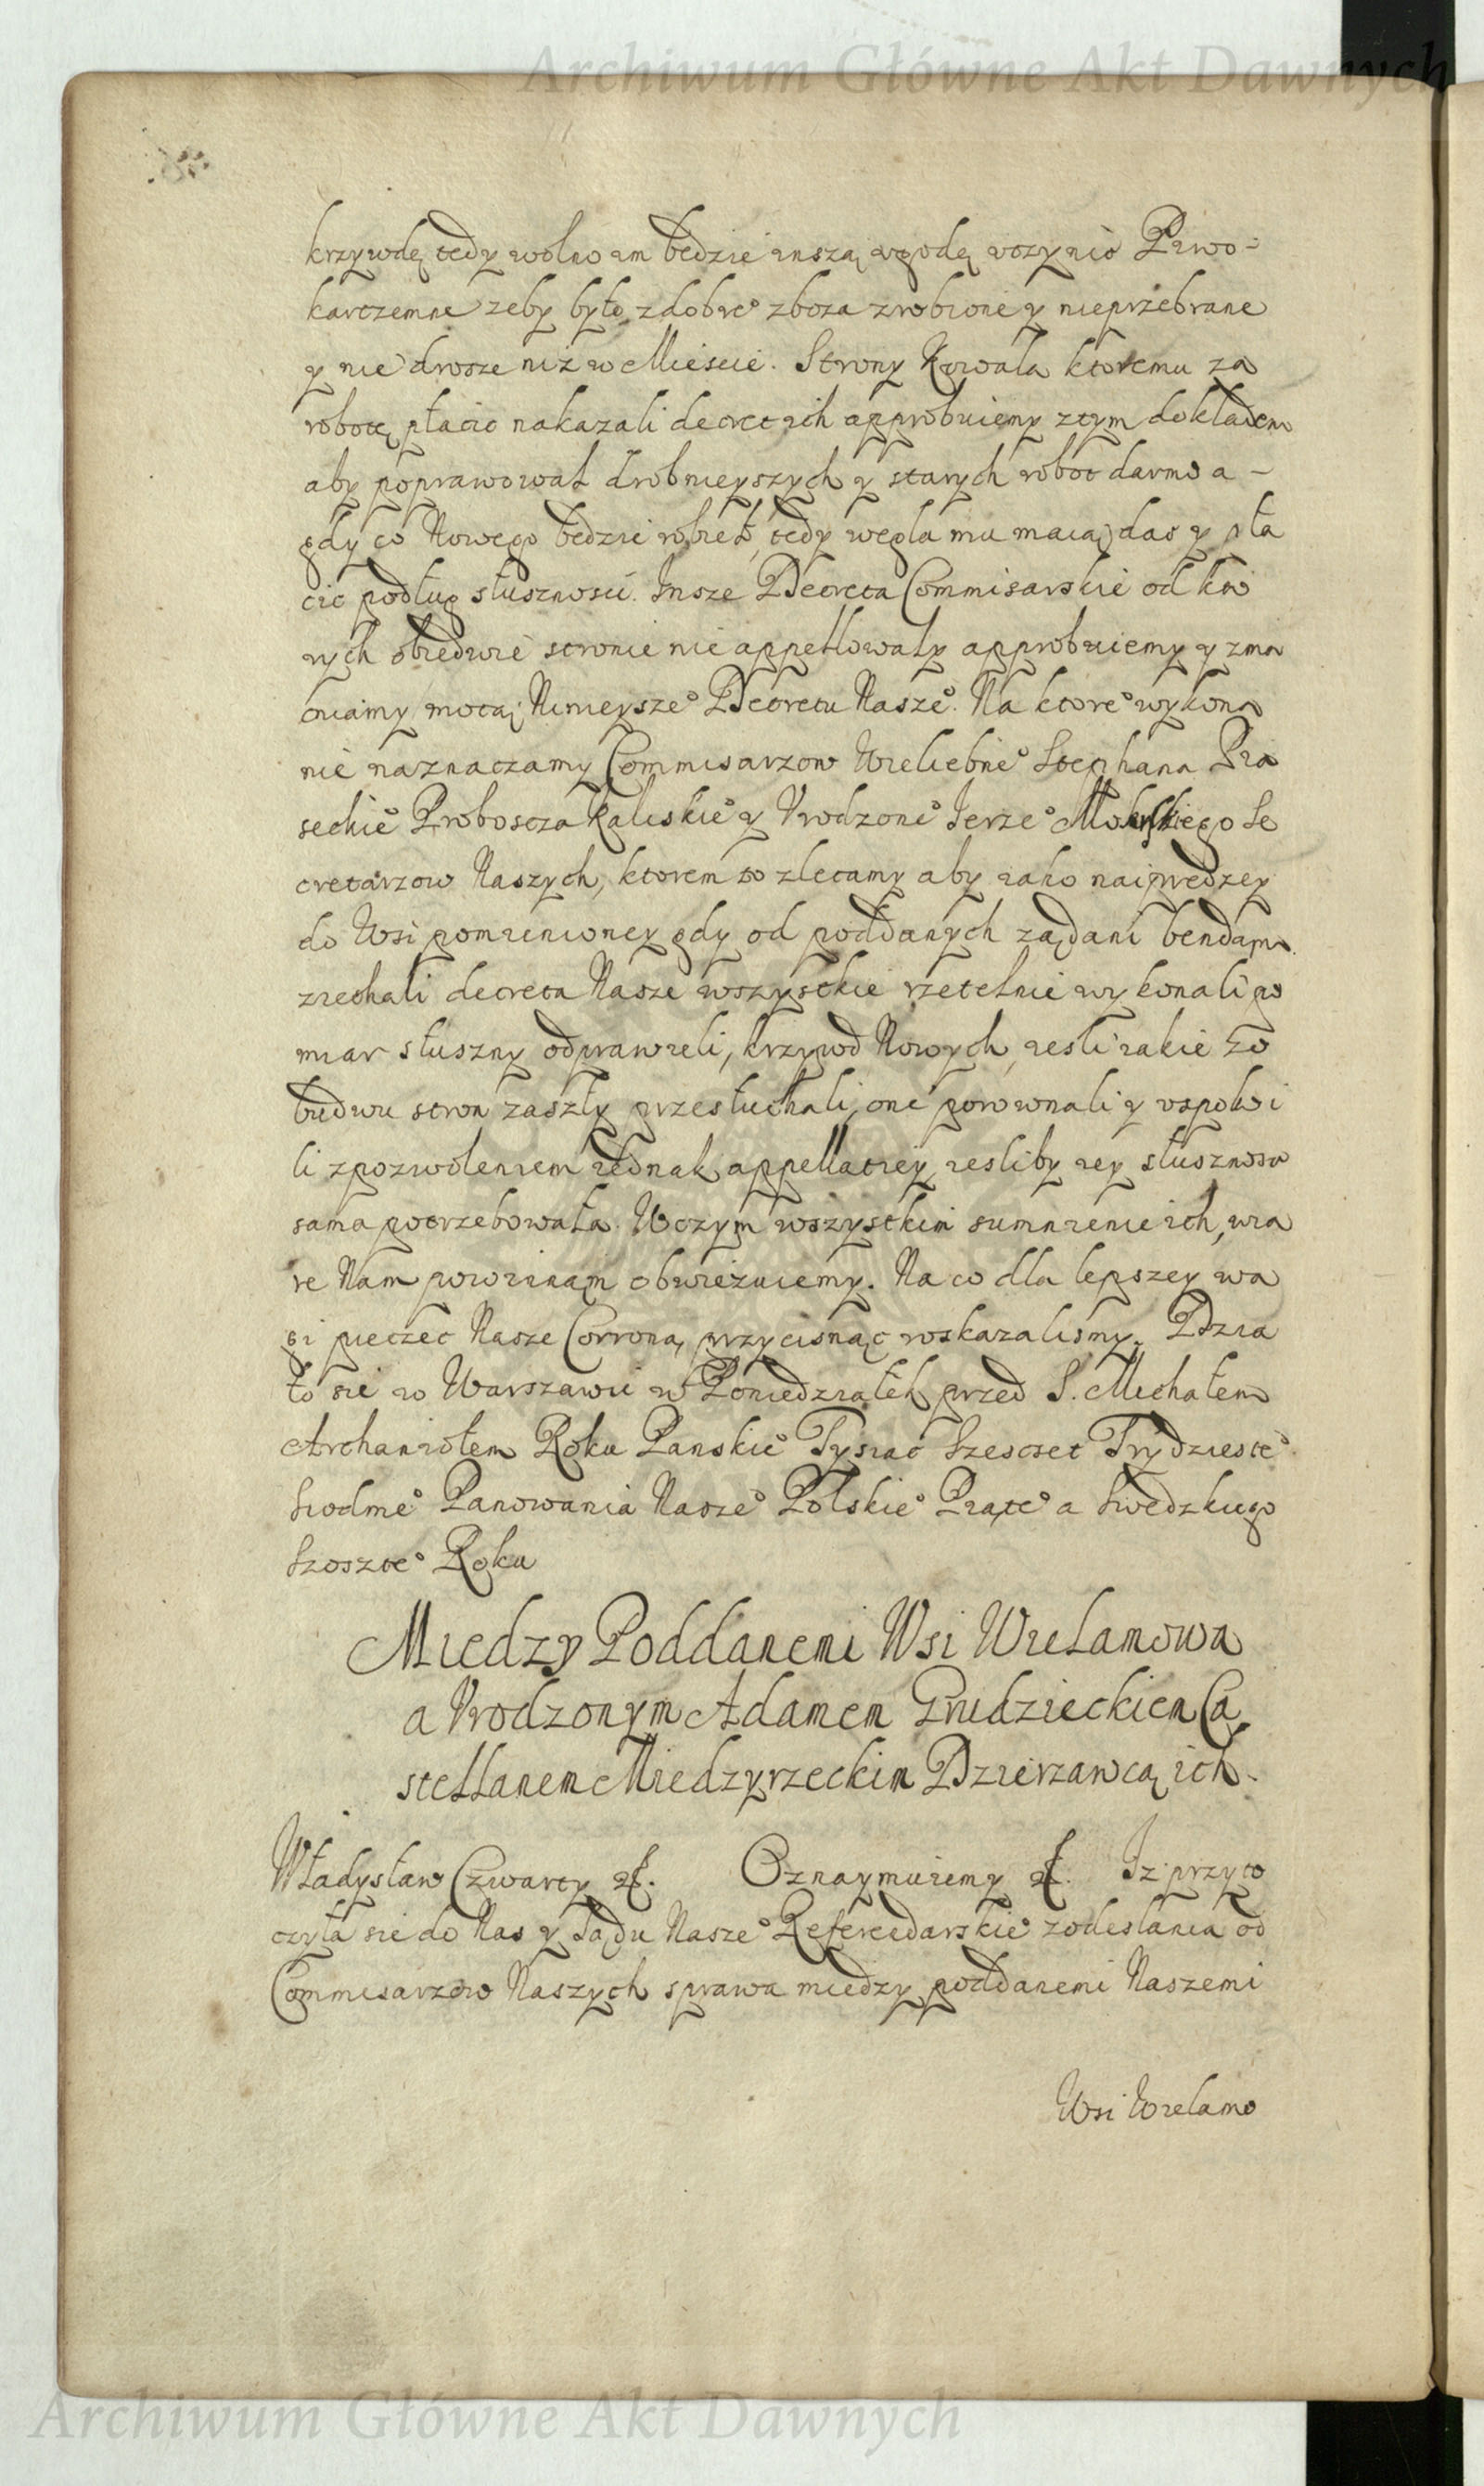 Archiwum Główne Akt Dawnych
krzywdę tedy wolno im będzie inszą ugodę uczynic Piwo-
karczemne zeby było z dobre° zboza zrobione y nieprzebrane
y nie drosze niz w Miescie. Strony Kowala ktoremu za
robotę płacic nakazali decret ich approbuiemy z tym dokładem
aby poprawował drobnieyszych y starych robot darmo a -
gdy co Nowego będzie robieł, tedy węgla mu maią das y pła
cic podług słusznosci. Insze Decreta Commisarskie od kto
rych obiedwie stronie nie appellowały approbuiemy y zma
cniamy mocą Ninieysze° Decretu Nasze°. Na ktore° wykona
nie naznaczamy Commisarzow Wieliebne° Stephana Pia
seckie° Proboscza Kaliskie° y Urodzone° Jerze° Se
cretarzow Naszych, ktorem to zlecamy aby iako naiprędzey
do Wsi pomienioney gdy od poddanych ządani bendąm
ziechali decreta Nasze wszystkie rzetelnie wykonali po
miar słuszny odprawieli, krzywd Nowych, iesli iakie zo
budwu stron zaszły przesłuchali, one porownali y uspokoi
li z pozwoleniem iednak appellaciey iesliby iey słusznosc
sama potrzebowała. W czym wszystkim sumnienie ich, wia
re Nam powinnąm obwiezuiemy. Na co dla lepszey wa
gi pieczec Nasze Corroną przycisnąc roskazalismy. Dzia
ło sie w Warszawie w Poniedziałek przed S. Michałem
Archaniołem Roku Panskie° Tysiąc Szescset Trydzieste°
Siodme° Panowania Nasze° Polskie° Piąte° a Swedzkiego
Szoszte° Roku
Miedzy Poddanemi Wsi Wielamowa
a Urodzonym Adamem Grudzieckiem Ca
stellanem Miedzyrzeckim Dzierzawcą ich.
Władysław Czwarty etc. Oznaymuiemy etc. Iz przyto
czyła sie do Nas y Sądu Nasze° Referendarskie° z odesłania od
Commisarzow Naszych sprawa miedzy poddanemi Naszemi
Wsi Wielamo
Archiwum Główne Akt Dawnych